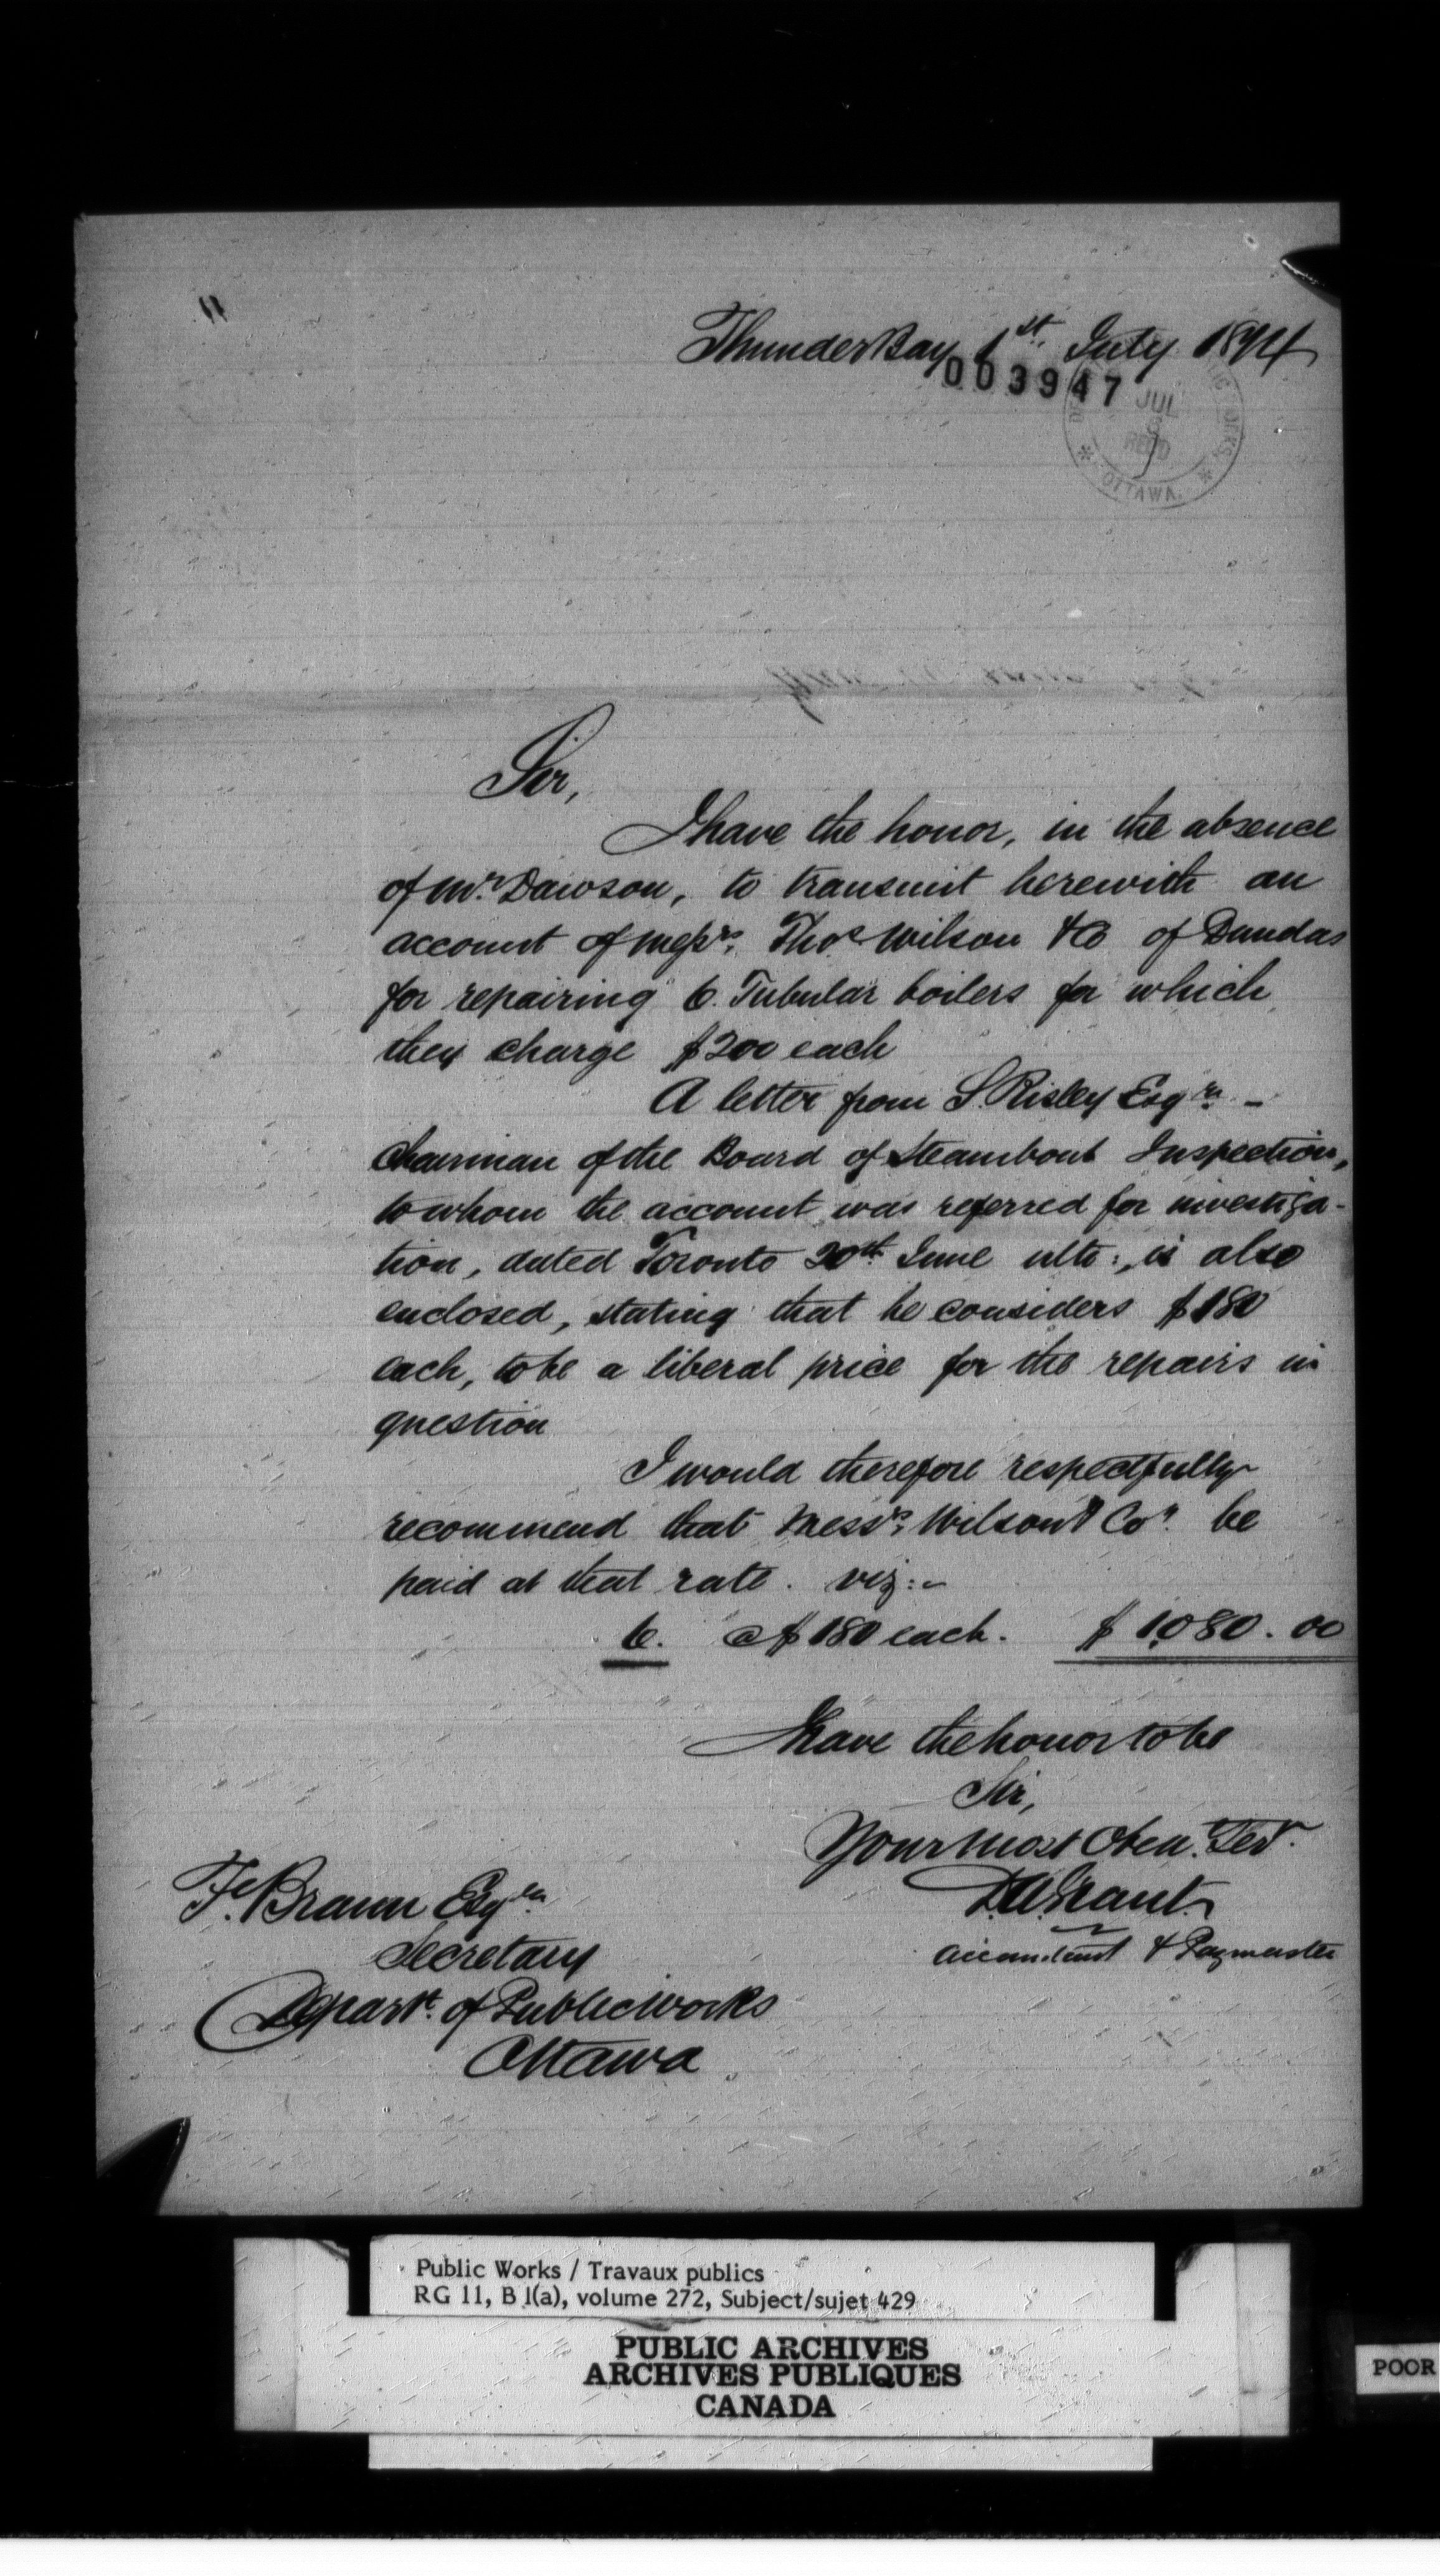 Thunder Bay 1st July 1874
003947
JUL
REC'D
OTTAWA.
Sir,
I have the honor, in the absence
of Mr. Dawson, to transmit herewith an
account of Messrs. Thos. Wilson & Co of Dundas
for repairing 6. Tubular boilers for which
they charge $200 each
A letter from S. Risley Esqre. -
Chairman of the Board of Steamboat Inspection,
to whom the account was referred for investiga-
tion, dated Toronto 20th. June ulto:, is also
enclosed, stating that he considers $180
each, to be a liberal price for the repairs in
question
I would therefore respectfully
recommend that Messrs. Wilson & Co. be
paid at that rate. viz:-
6. @ $180 each. $1,080.00
I have the honor to be
Sir,
Your most Obed. Servt.
D.A. Grant
Accountant & Paymaster
F. Braun Esqre.
Secretary
Depart. of Public Works
Ottawa.
Public Works / Travaux publics
RG 11, B 1(a), volume 272, Subject/sujet 429
PUBLIC ARCHIVES
ARCHIVES PUBLIQUES
CANADA
POOR